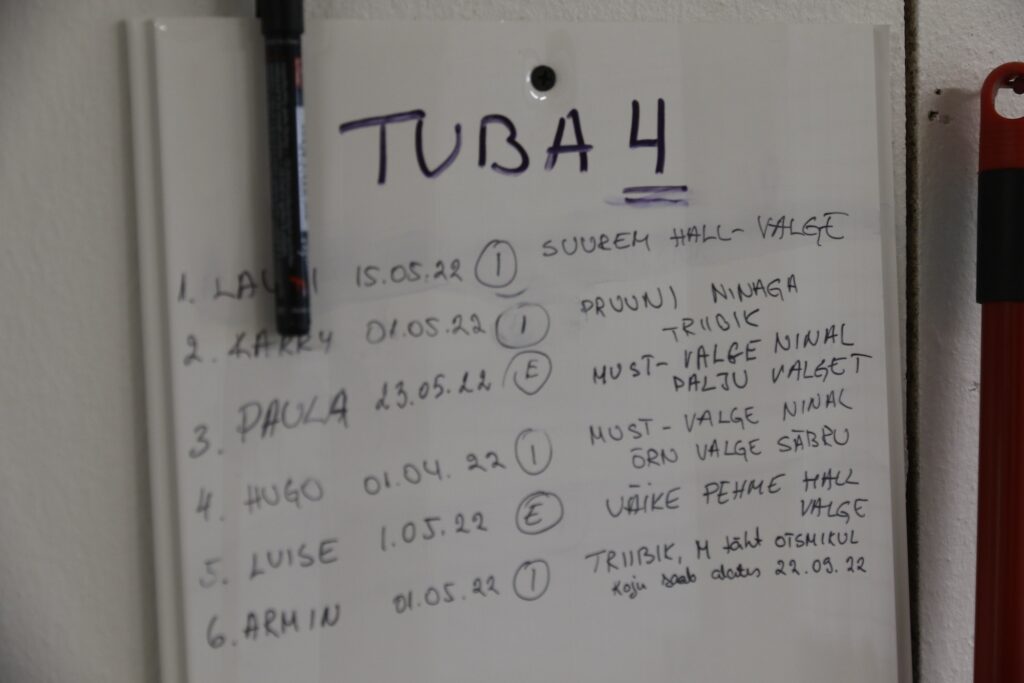 TUBA 4
1. 15.05.22 I SUUREM HALL-VALGE
2. KARRY 01.05.22 I PRUUNI NINAGA
TRIIBIK
3. PAULA 23.05.22 E MUST-VALGE NINAL
PALJU VALGET
4. HUGO 01.04.22 I MUST-VALGE NINAL
ÕRN VALGE SÄBRU
5. LUISE 1.05.22 E VÄIKE PEHME HALL
VALGE
6. ARMIN 01.05.22 I TRIIBIK, M täht OTSMIKUL
Koju saab alates 22.09.22